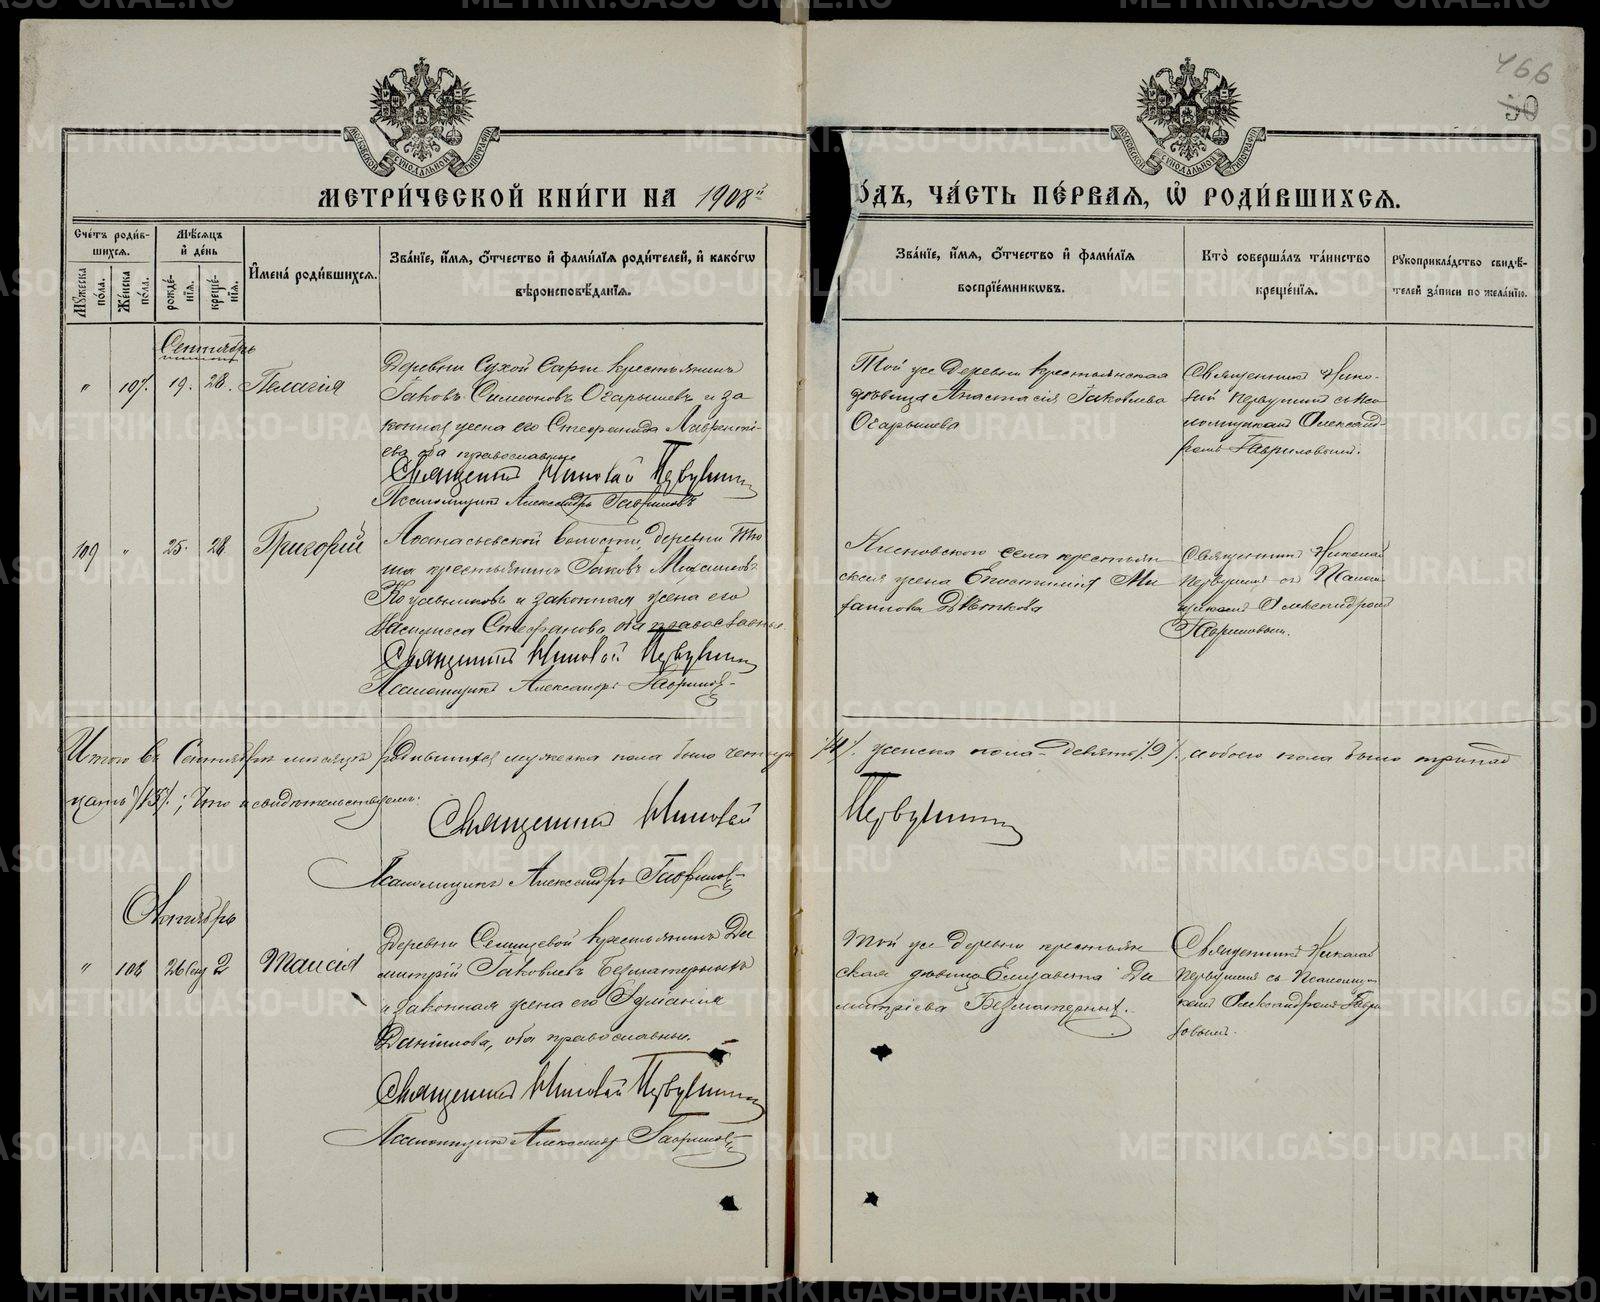 466
50
МЕТРИ́ЧЕСКОЙ КНИ́ГИ НА 1908й
О́ДЪ, ЧА́СТЬ ПЕ́РВАѦ, Ѡ҆ РОДИ́ВШИХСѦ.
Сче́тъ роди́в-
шихсѧ.
Мꙋ́жеска по́ла.
Же́нска по́ла.
Мѣ́сѧцъ и҆ де́нь
рожде́-нїѧ.
креще́-нїѧ.
И҆мена̀ роди́вшихсѧ.
Зва́нїе, и҆́мѧ, ѻ҆́тчество и҆ фами́лїѧ роди́телей, и҆ како́гѡ
вѣроисповѣ́данїѧ.
Зва́нїе, и҆́мѧ, ѻ҆́тчество и҆ фами́лїѧ
воспрїе́мникѡвъ.
Кто̀ соверша́лъ та́инство
креще́нїѧ.
Рꙋкоприкла́дство свидѣ́-
телей за́писи по жела́нїю.
Сентябрь
" 107. 19. 28. Пелагія
Деревни Сухой Сарги крестьянинъ
Іаковъ Симеоновъ Огарышевъ и за
конная жена его Стефанида Лавренті-
ева оба православные
Священникъ Николай Первушинъ
Псаломщикъ Александръ Гавриловъ
Той же деревни крестьянская
дѣвица Анастасія Іаковлева
Огарышева
Священникъ Нико-
лай Первушинъ съ пса-
ломщикомъ Александ-
ромъ Гавриловымъ.
109 " 25. 28. Григорій
Аѳанасьевской волости, деревни
крестьянинъ Іаковъ Михаиловъ
и законная жена его
Василисса Стефанова оба православные
Священникъ Николай Первушинъ
Псаломщикъ Александръ Гавриловъ
села крестьян
ская жена Епистимія Ми
хаилова
Священникъ Николай
Первушинъ съ Псалом
щикомъ Александромъ
Гавриловымъ.
Итого въ Сентябрѣ мѣсяцѣ родившихся мужеска пола было четыре
/4/. женска пола - девять /9/., обоего пола было тринад
цать /13/.; Что и свидѣтельствуемъ:
Священникъ Николай
Первушинъ
Псаломщикъ Александръ Гавриловъ
Октябрь
" 108 26 Сен 2 Таисія
Деревни Сенцевой крестьянинъ Ди
митрій Іаковлевъ Безматерныхъ
и законная жена его Іуліанія
Даніилова, оба православные.
Священникъ Николай Первушинъ
Псаломщикъ Александръ Гавриловъ
Той же деревни крестьян
ская дѣвица Елизавета Ди
митріева Безматерныхъ.
Священникъ Николай
Первушинъ съ Псаломщи
комъ Александромъ Гаври
ловымъ.
METRIKI.GASO-URAL.RU